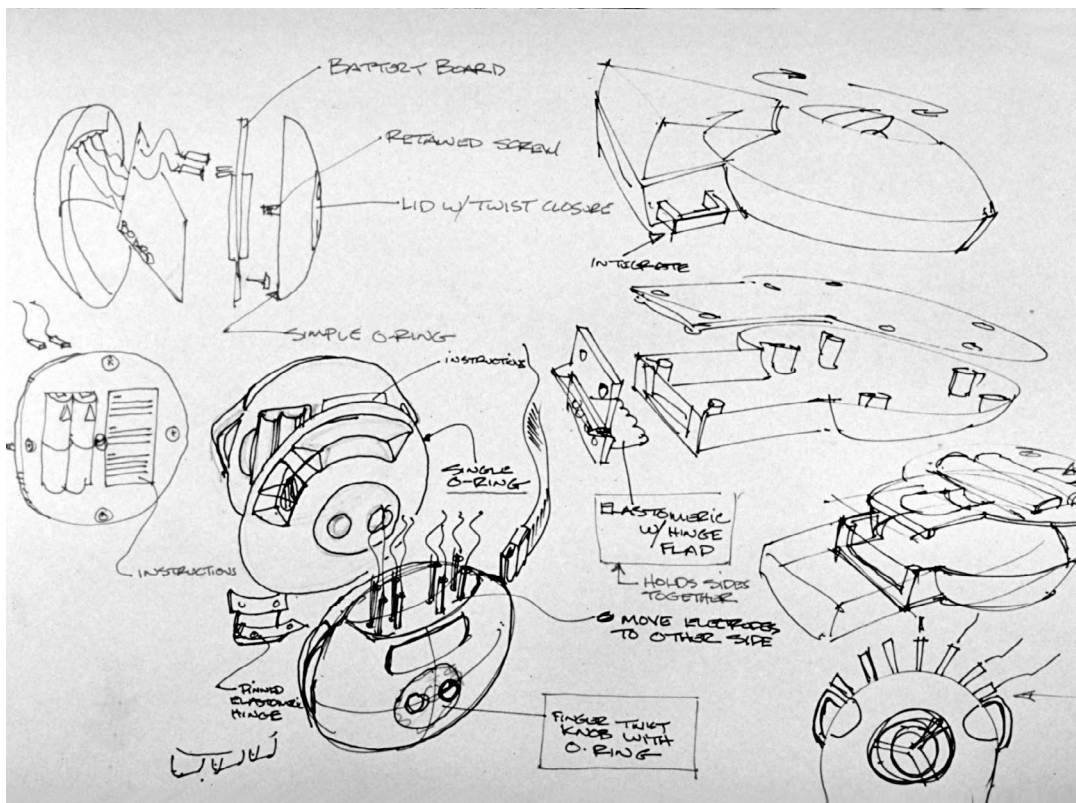 BATTERY BOARD
RETAINED SCREW
LID W/ TWIST CLOSURE
BOARD
SIMPLE O-RING
INTIGRATE
INSTRUCTIONS
SINGLE
O-RING
ELASTOMERIC
W/ HINGE
FLAP
HOLDS SIDES
TOGETHER
INSTRUCTIONS
6 MOVE ELECTRODES
TO OTHER SIDE
PINNED
ELASTOMERIC
HINGE
FINGER TWIST
KNOB WITH
O-RING